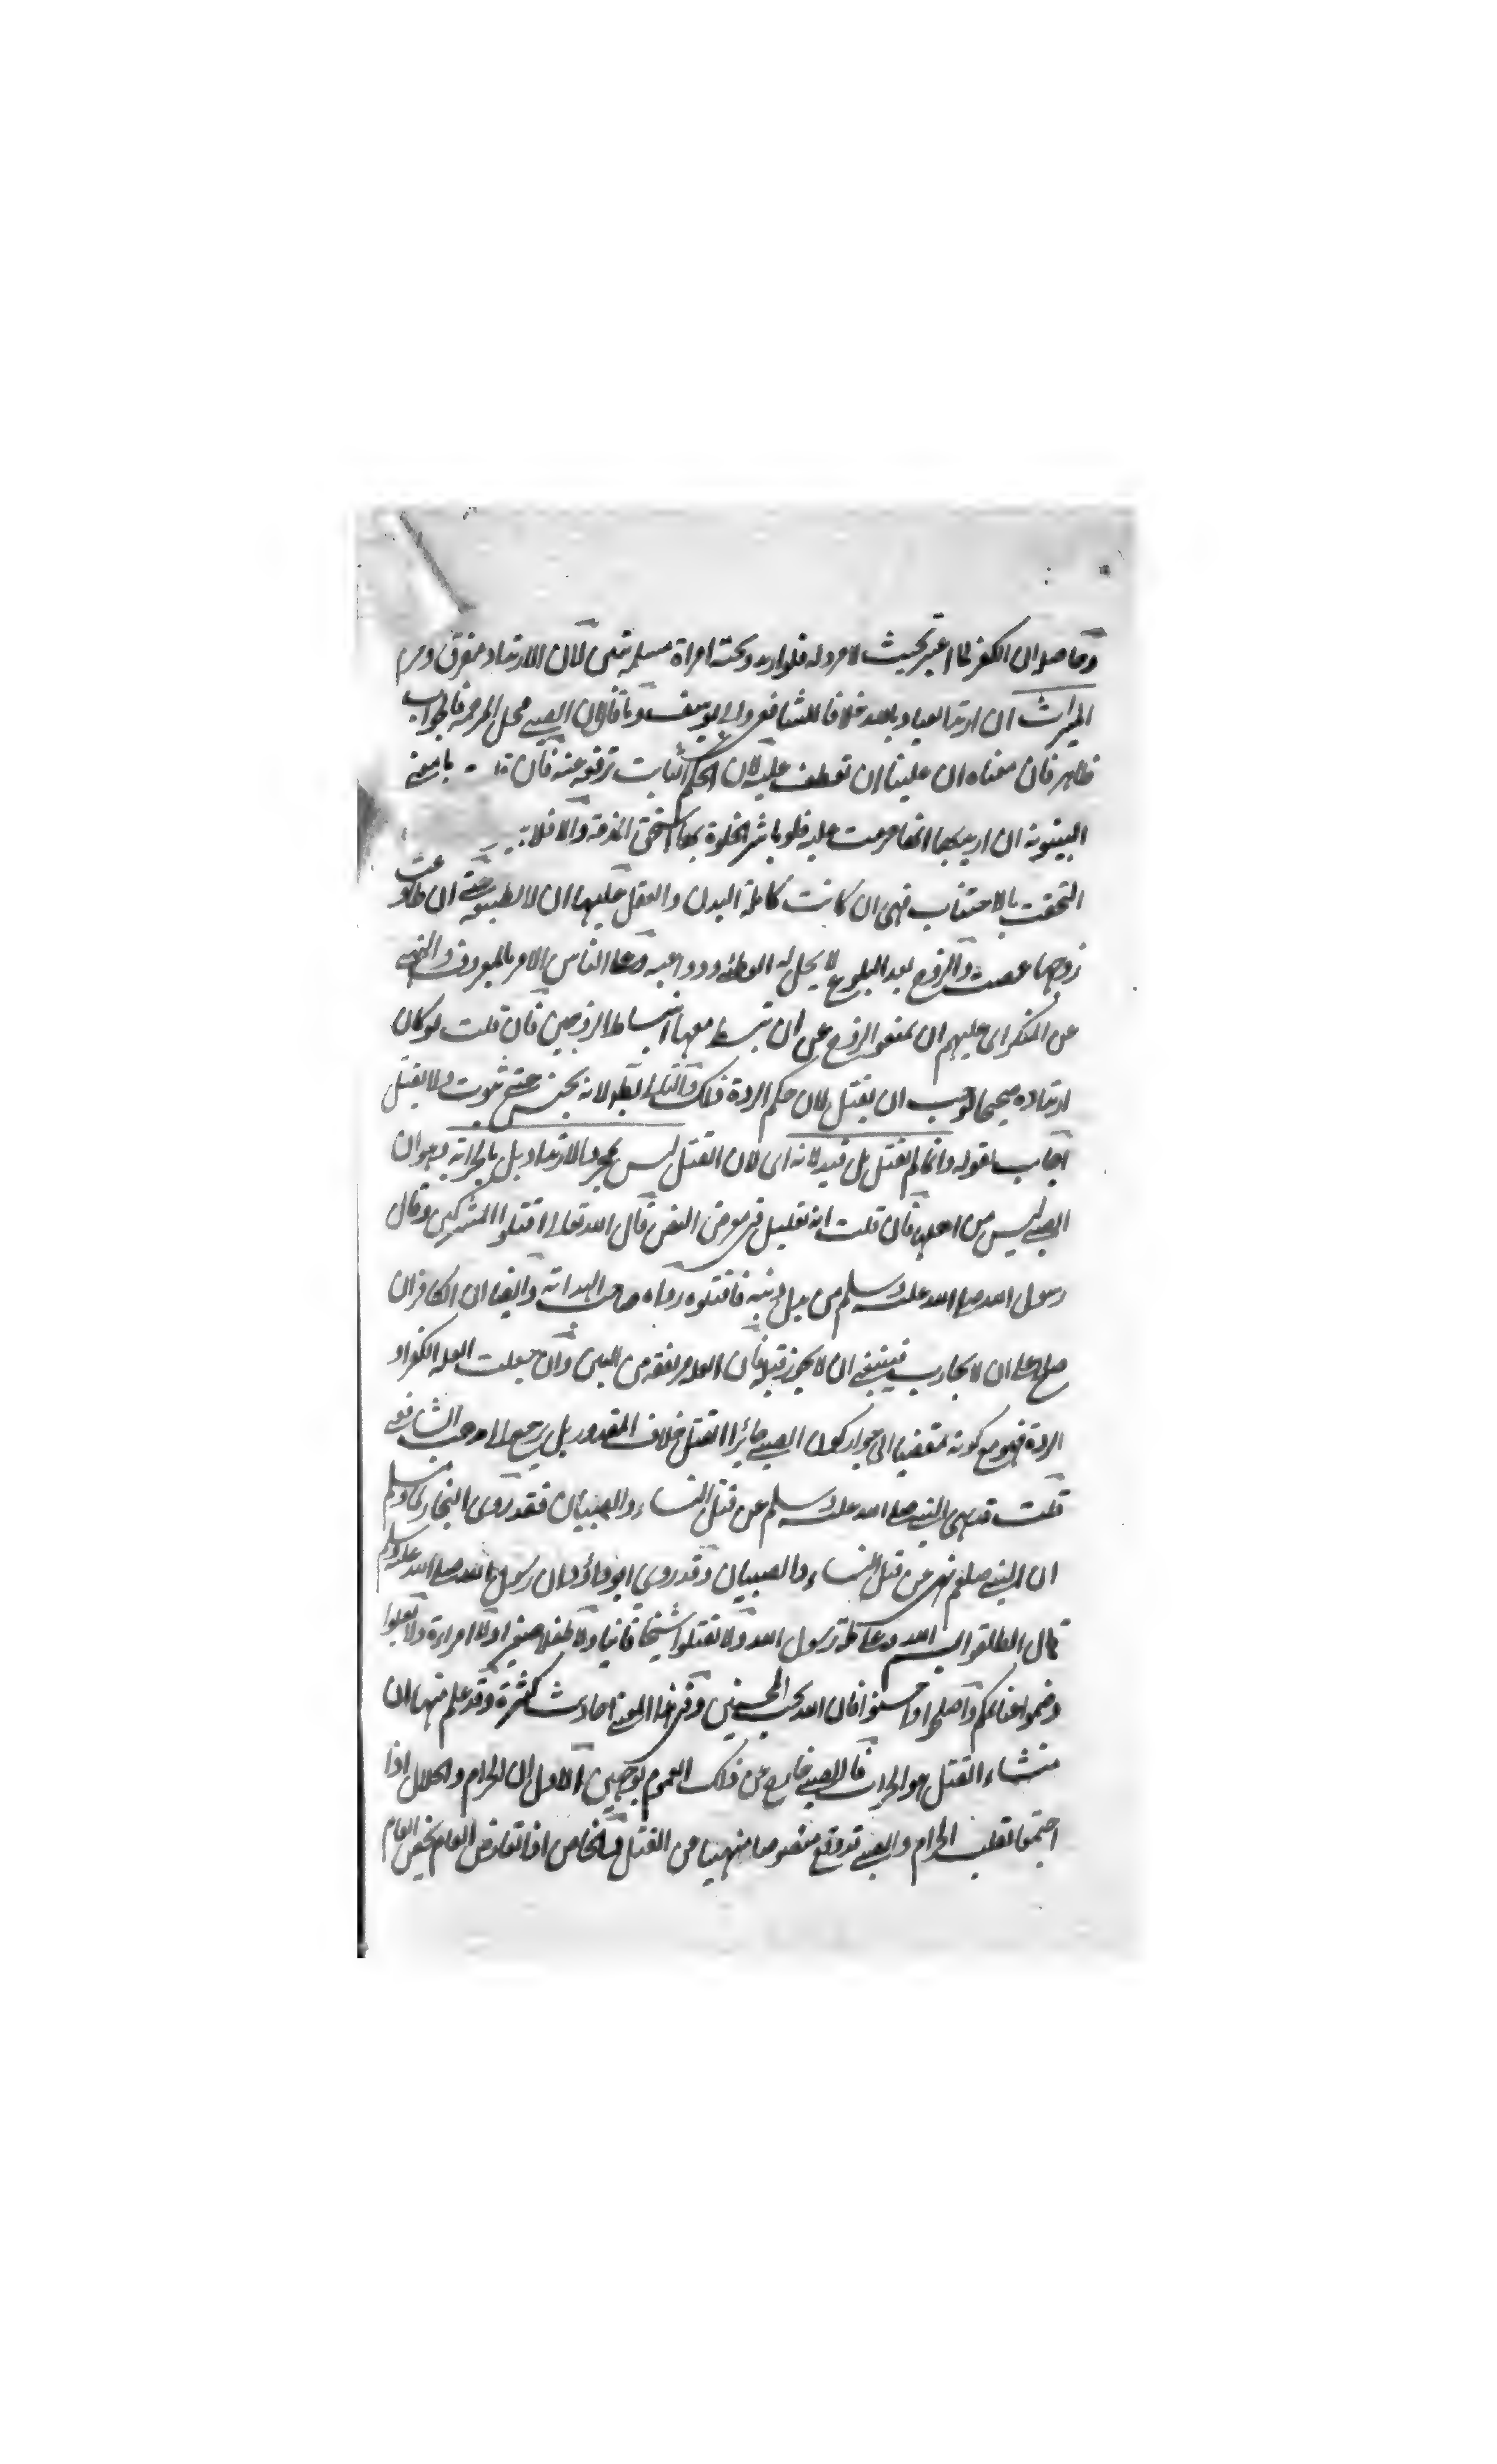 وحاصله ان الكفر لما اعتبر بحيث لا مرد له فلو ارتد وتحته امراة مسلمة تبين لان الارتداد مفرق وحرم
الميراث ان ارتد العياذ بالله خلافا للشافعي وابي يوسف وما قالا ان الصبي محل المرحمة فالجواب
ظاهر فان معناه ان علينا ان نعطف عليه لان الحكم الثابت نرفعه عنه فان بامعنى
البينونة ان اريد بها انها حرمت عليه فلو باشر الخلوة بها استحق الفرقة والا فلا
التحقت بالاجتناب فهي ان كانت كاملة البدن والعقل عليها ان لا تطيعه حتى ان طاوعت
زوجها عصت والزوج بعد البلوغ لا يحل له الوطئ ودواعيه وعلى الناس الامر بالمعروف والنهي
عن المنكر اى عليهم ان يمنعوا الزوج عن ان ينبسط معها انبساط الزوجين فان قلت لو كان
ارتداده صحيحا لوجب ان يقتل لان حكم الردة ذلك والتالي باطل لانه يحبس حتى يموت ولا يقتل
اجاب بقوله وانما لم يقتل بل قيد لانه اى لان القتل ليس بمجرد الارتداد بل بالحرابة وهو ان
الصبي ليس من اهلها فان قلت انه تعليل في معرض النص قال الله تعالى اقتلوا المشركين وقال
رسول الله صلى الله عليه وسلم من بدل دينه فاقتلوه رواه صاحب الهداية وايضا ان الكافر ان
صلح على ان لا يحارب فينبغي ان لا يجوز قتله فان العلة مرتفعة من البين وان جعلت العلة الكفر او
الردة فهو مع كونه مقتضيا الى جواز كون الصبي جائز القتل خلاف المقدور بل يرجع الى مذهب الشافعي
قلت قد نهى النبي صلى الله عليه وسلم عن قتل النساء والصبيان فقد روى البخاري ومسلم
ان النبي صلعم نهى عن قتل النساء والصبيان وقد روى ابو داؤد ان رسول الله صلى الله عليه وسلم
قال انطلقوا بسم الله وعلى ملة رسول الله ولا تقتلوا شيخا فانيا ولا طفلا صغيرا ولا امراة ولا تغلوا
وضموا غنائمكم واصلحوا واحسنوا فان الله يحب المحسنين وفي هذا المعنى احاديث كثيرة وقد علم منها ان
منشاء القتل هو الحراب فالصبي خارج عن ذلك العموم بوجهين الاول ان الحرام والحلال اذا
اجتمعا تغلب الحرام والصبي قد وقع منصوصا منهيا من القتل والخاص اذا تعارض العام يخص العام